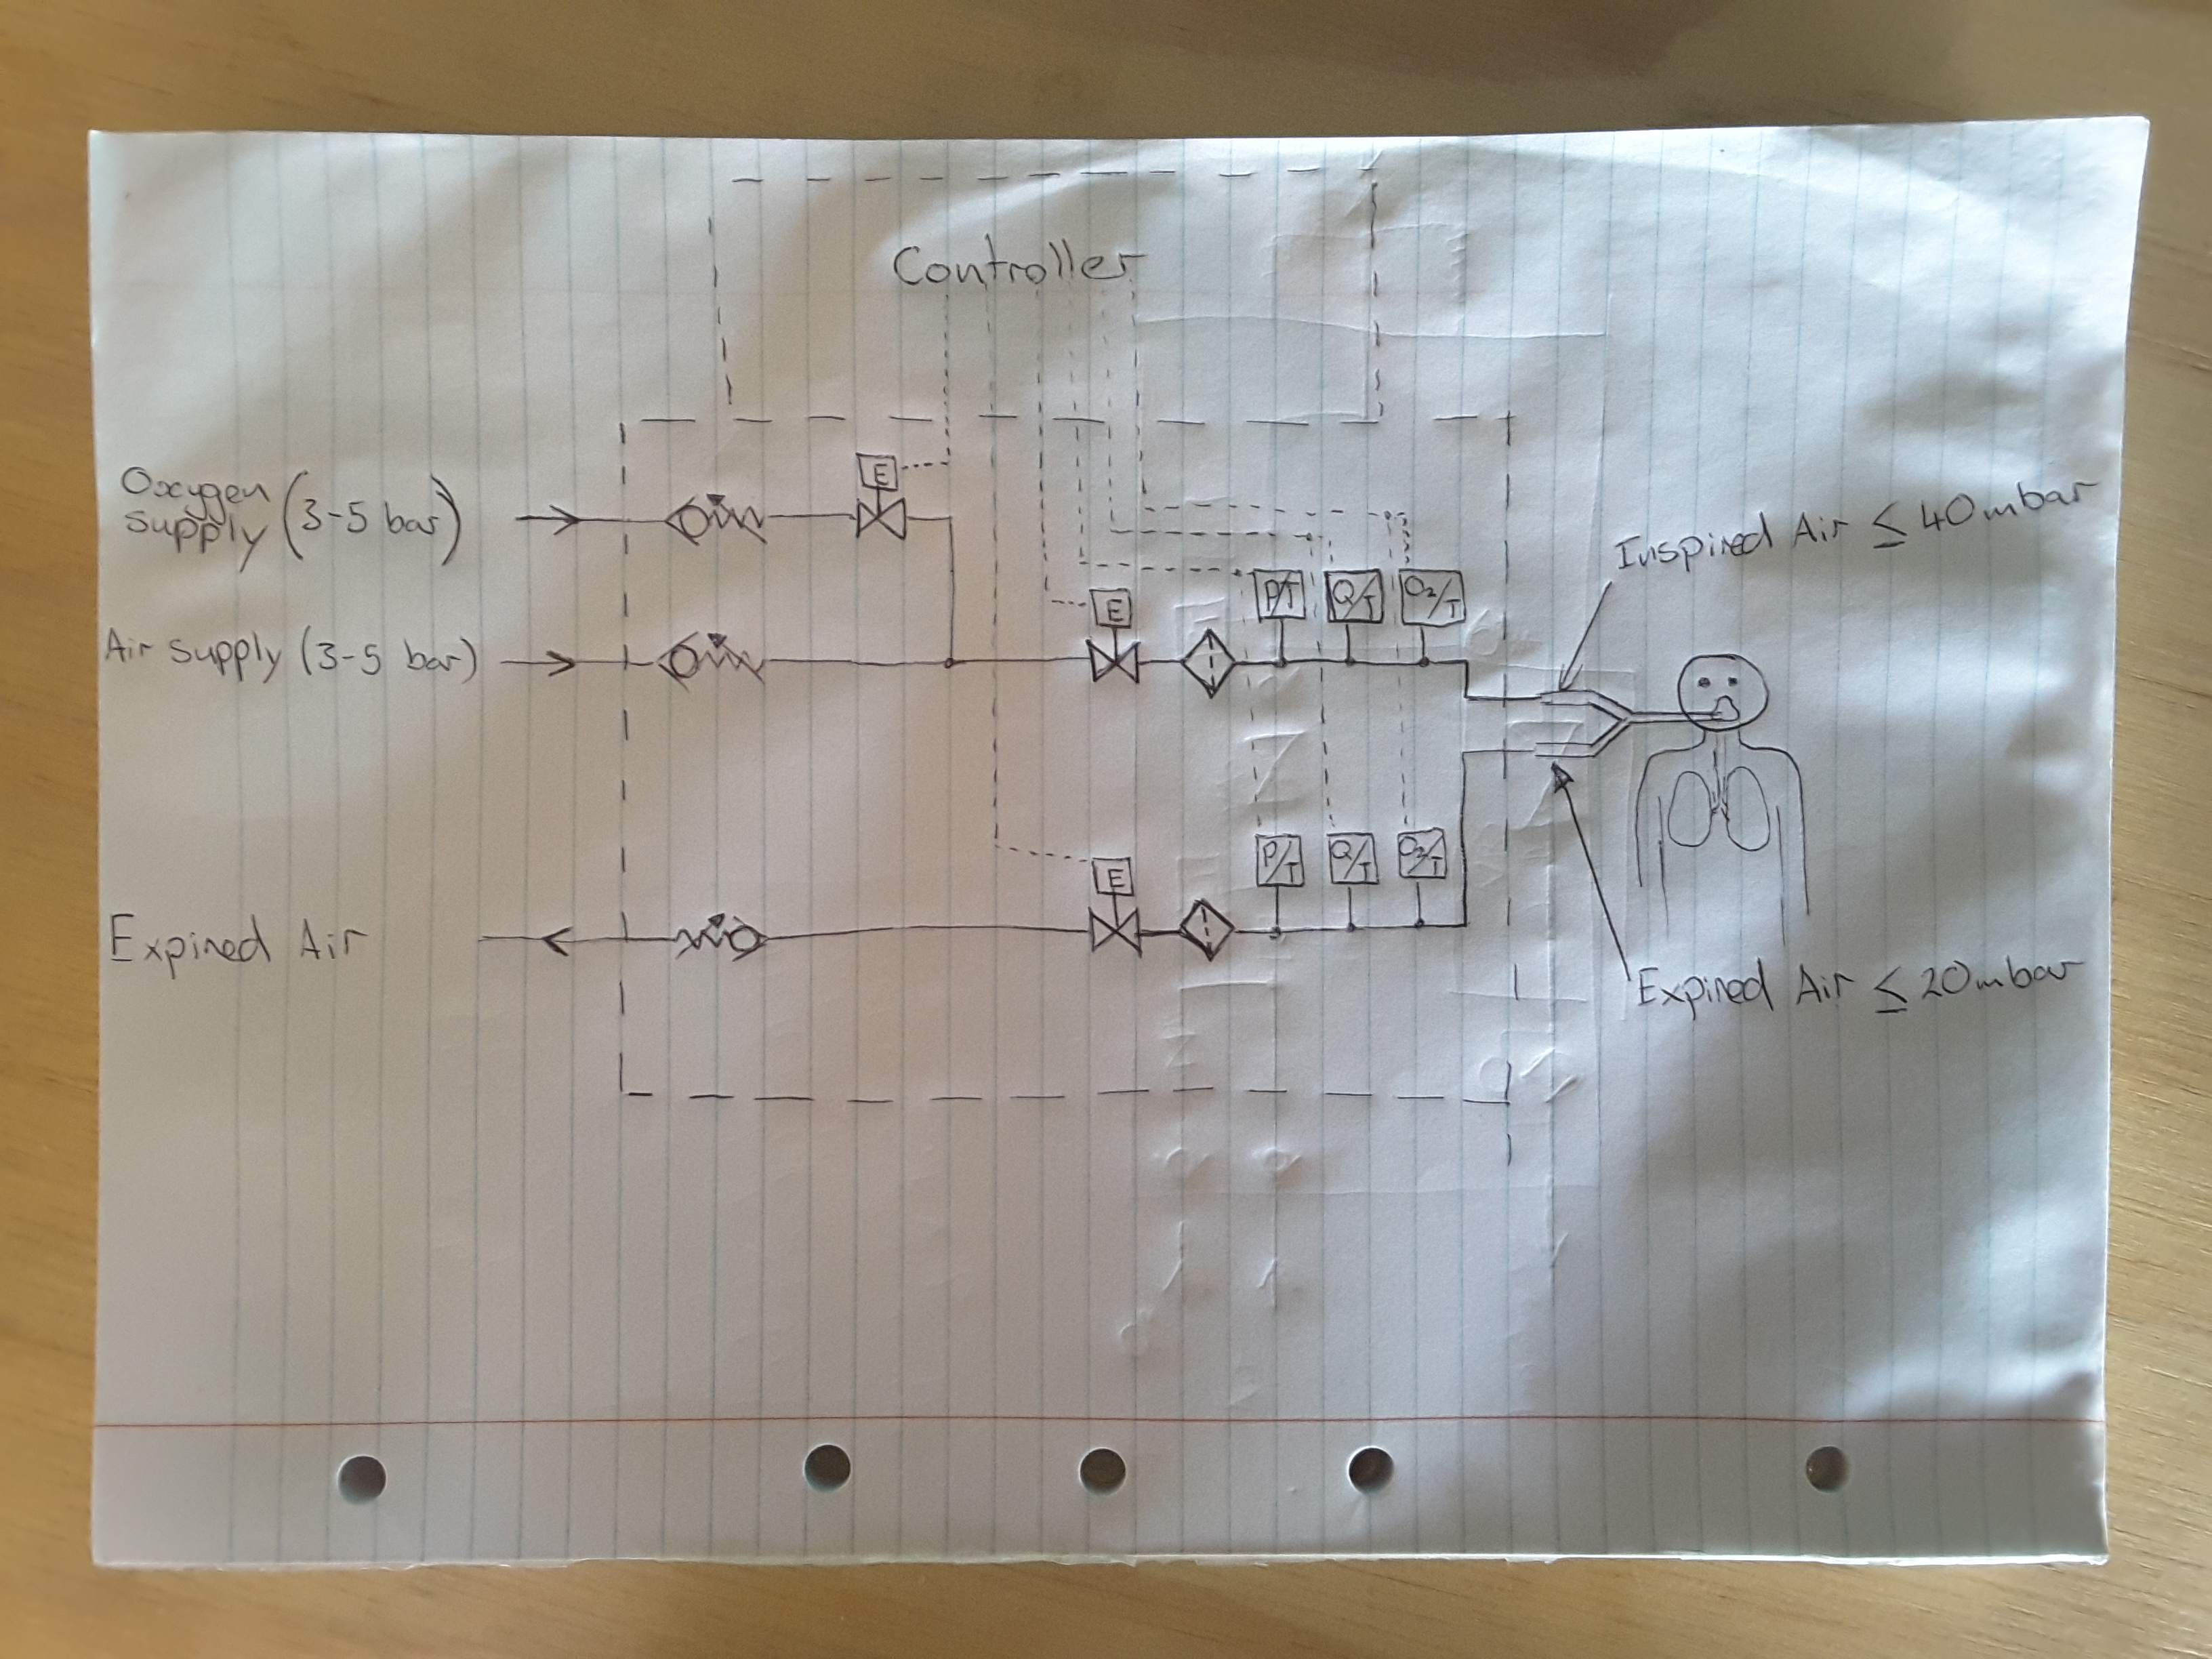 Controller
E
Oxygen
Supply (3-5 bar)
E
Air Supply (3-5 bar)
P/T
Q/T
O2/T
Inspired Air ≤ 40mbar
E
P/T
Q/T
O2/T
Expired Air
Expired Air ≤ 20mbar